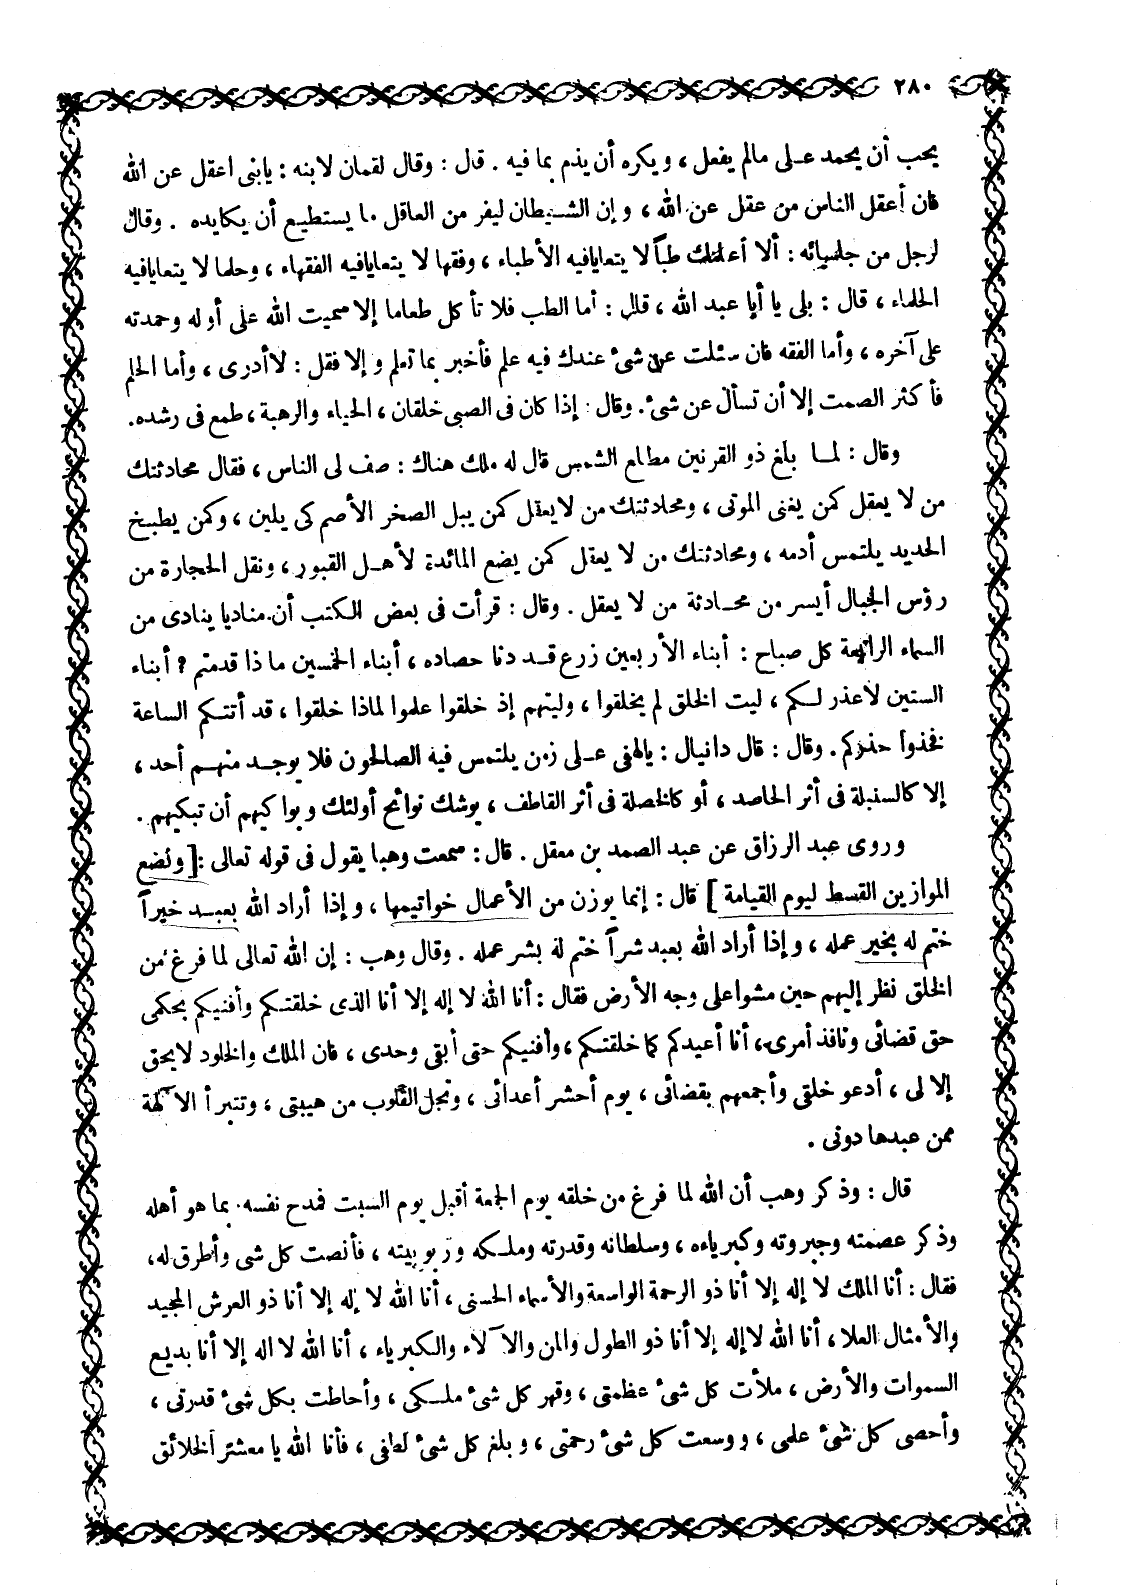 ٢٨٠
يحب أن يحمد على مالم يفعل ، ويكره أن يذم بما فيه . قال : وقال لقمان لابنه : يابنى اعقل عن الله
فان أعقل الناس من عقل عن الله ، وإن الشيطان ليفر من العاقل ما يستطيع أن يكايده . وقال
لرجل من جلسائه : ألا أعلمك طباً لا يتعايافيه الأطباء ، وفقها لا يتعايافيه الفقهاء ، وحلما لا يتعايافيه
الحلماء ، قال : بلى يا أبا عبد الله ، قال : أما الطب فلا تأكل طعاما إلا سميت الله على أوله وحمدته
على آخره ، وأما الفقه فان سئلت عن شىء عندك فيه علم فأخبر بما تعلم وإلا فقل : لاأدرى ، وأما الحلم
فأكثر الصمت إلا أن تسأل عن شىء . وقال : إذا كان فى الصبى خلقان ، الحياء والرهبة ، طمع فى رشده .
وقال : لما بلغ ذو القرنين مطلع الشمس قال له ملك هناك : صف لى الناس ، فقال محادثتك
من لا يعقل كمن يغنى الموتى ، ومحادثتك من لايعقل كمن يبل الصخر الأصم كى يلين ، وكمن يطبخ
الحديد يلتمس أدمه ، ومحادثتك من لا يعقل كمن يضع المائدة لأهل القبور ، ونقل الحجارة من
رؤس الجبال أيسر من محادثة من لا يعقل . وقال : قرأت فى بعض الكتب أن مناديا ينادى من
السماء الرابعة كل صباح : أبناء الأربعين زرع قد دنا حصاده ، أبناء الخمسين ما ذا قدمتم ؟ أبناء
الستين لاعذر لكم ، ليت الخلق لم يخلقوا ، وليتهم إذ خلقوا علموا لماذا خلقوا ، قد أتتكم الساعة
فخذوا حذركم . وقال : قال دانيال : يالهفى على زمن يلتمس فيه الصالحون فلا يوجد منهم أحد ،
إلا كالسنبلة فى أثر الحاصد ، أو كالخصلة فى أثر القاطف ، يوشك نوائح أولئك وبواكيهم أن تبكيهم .
وروى عبد الرزاق عن عبد الصمد بن معقل . قال : سمعت وهبا يقول فى قوله تعالى : [ ونضع
الموازين القسط ليوم القيامة ] قال : إنما يوزن من الأعمال خواتيمها ، وإذا أراد الله بعبد خيراً
ختم له بخير عمله ، وإذا أراد الله بعبد شراً ختم له بشر عمله . وقال وهب : إن الله تعالى لما فرغ من
الخلق نظر إليهم حين مشوا على وجه الأرض فقال : أنا الله لا إله إلا أنا الذى خلقتكم وأفنيكم بحكمى
حق قضائى ونافذ أمرى ، أنا أعيدكم كما خلقتكم ، وأفنيكم حتى أبقى وحدى ، فان الملك والخلود لايحق
إلا لى ، أدعو خلقى وأجمعهم بقضائى ، يوم أحشر أعدائى ، وتجل القلوب من هيبتى ، وتتبرأ الآلهة
ممن عبدها دونى .
قال : وذكر وهب أن الله لما فرغ من خلقه يوم الجمعة أقبل يوم السبت فمدح نفسه بما هو أهله
وذكر عصمته وجبروته وكبرياءه ، وسلطانه وقدرته وملكه وربوبيته ، فأنصت كل شى وأطرق له ،
فقال : أنا الملك لا إله إلا أنا ذو الرحمة الواسعة والأسماء الحسنى ، أنا الله لا إله إلا أنا ذو العرش المجيد
والأمثال العلا ، أنا الله لاإله إلا أنا ذو الطول والمن والآلاء والكبرياء ، أنا الله لا اله إلا أنا بديع
السموات والأرض ، ملأت كل شىء عظمتى ، وقهر كل شىء ملكى ، وأحاطت بكل شىء قدرتى ،
وأحصى كل شىء علمى ، ووسعت كل شىء رحمتى ، وبلغ كل شىء لطفى ، فأنا الله يا معشر الخلائق